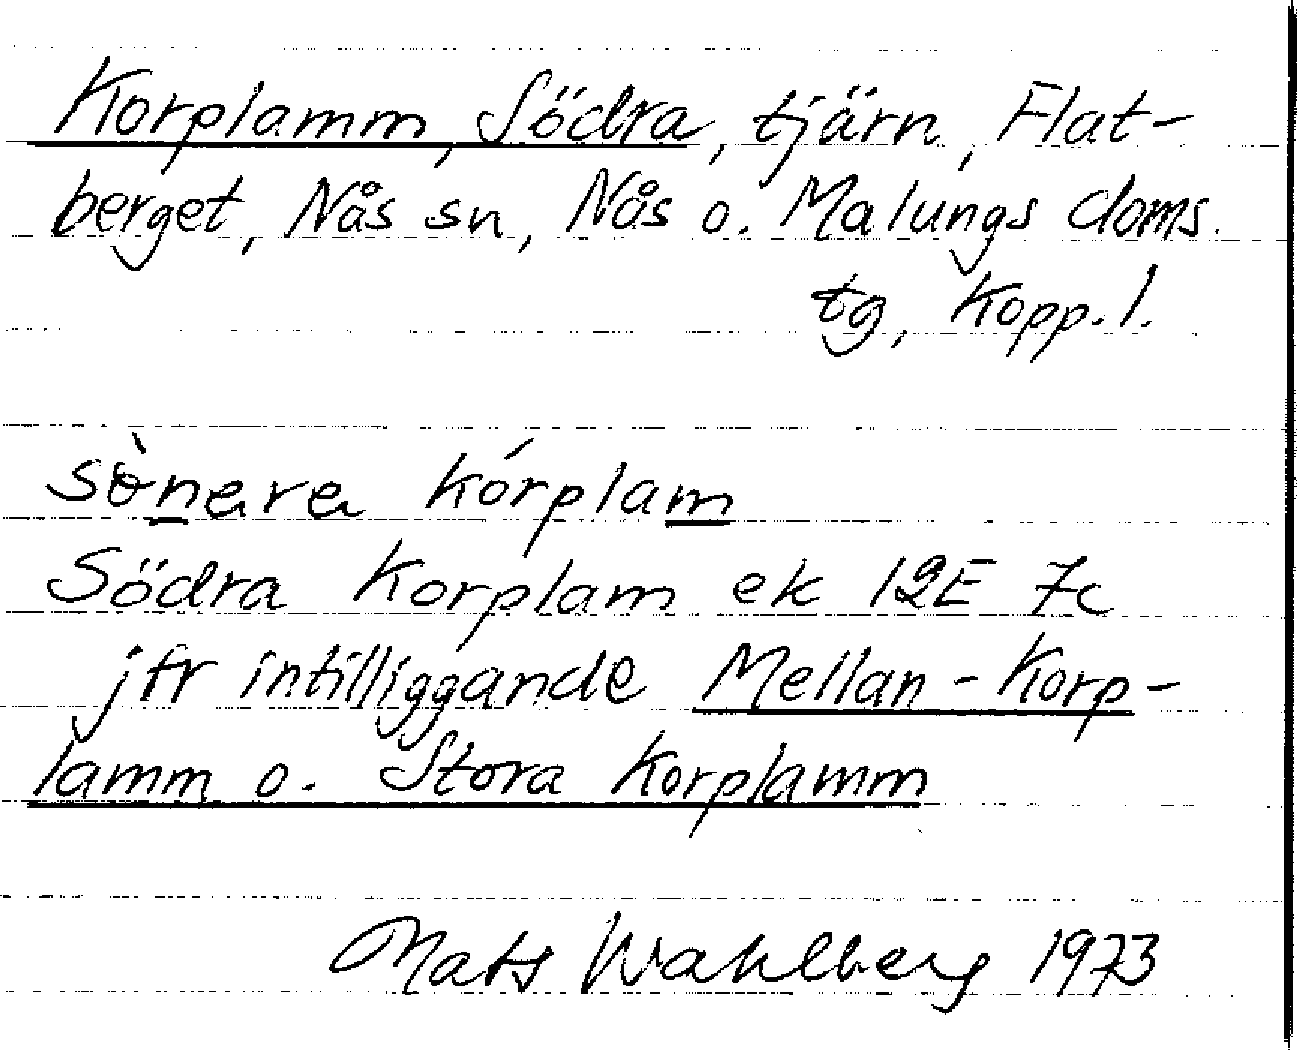 Korplamm, Södra, tjärn, Flat-
berget, Nås sn, Nås o. Malungs doms.
tg, Kopp. l.
sònara kórplam
Södra Korplam ek 12E 7c
jfr intilliggande Mellan-Korp-
lamm o. Stora Korplamm
Mats Wahlberg 1973